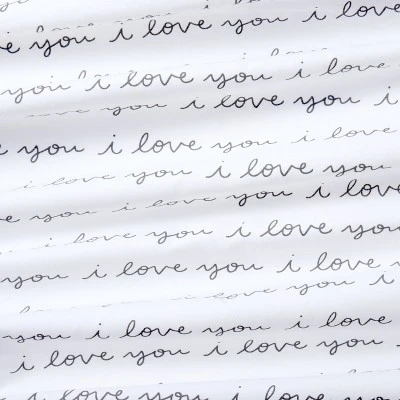 i love
you i love you i love
you i love you i love
you i love you i
you i love you i love
i love you i love you
you i love you i love
i love you i love you
you i love you i love
i love you i
you i love you i love
i love you i love you
i love you i love you